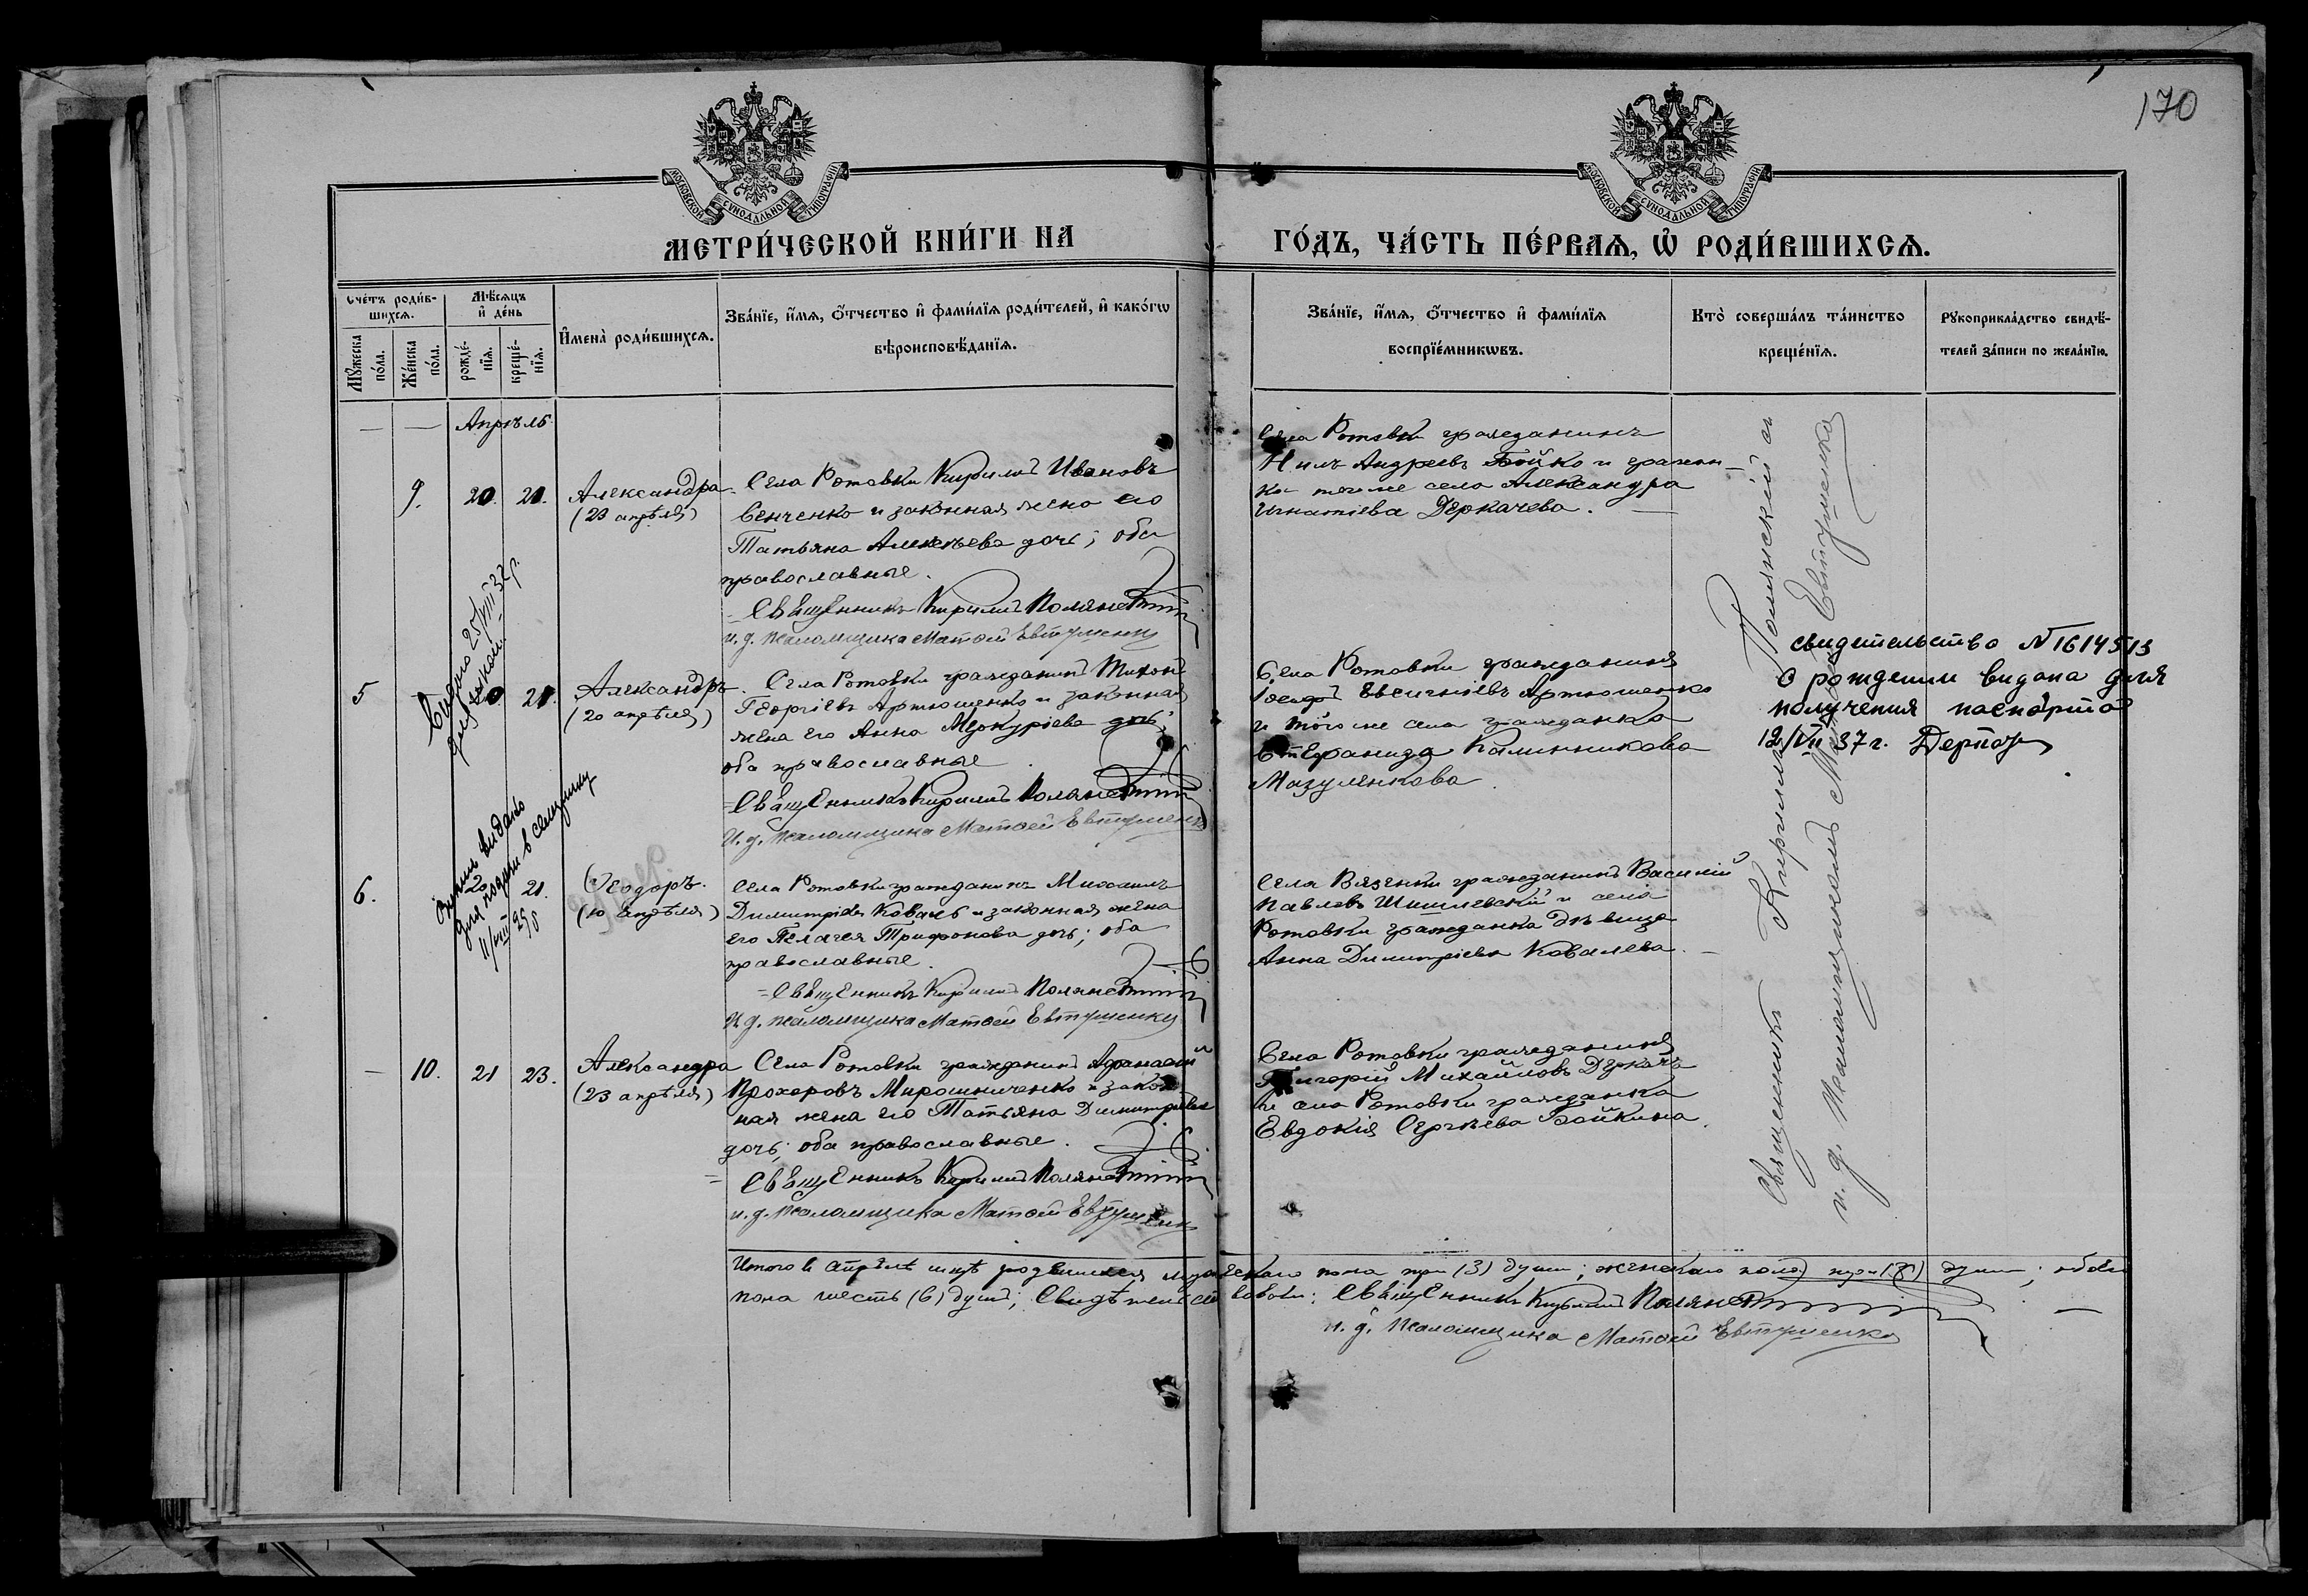 170
МОСКОВСКОЙ СУНОДАЛЬНОЙ ТИПОГРАФІИ
МОСКОВСКОЙ СУНОДАЛЬНОЙ ТИПОГРАФІИ
МЕТРИ́ЧЕСКОЙ КНИ́ГИ НА
ГО́ДЪ, ЧА́СТЬ ПЕ́РВАЯ, Ѡ҆ РОДИ́ВШИХСЯ.
Сче́тъ роди́в-
шихся.
Мꙋжеска
по́ла.
Же́нска
по́ла.
Мѣ́сяцъ
и҆ де́нь
рожде́-
нїя.
креще́-
нїя.
И҆мена̀ роди́вшихся.
Зва́нїе, и҆́мя, ѻ҆́тчество и҆ фами́лїя роди́телей, и҆ како́гѡ
вѣроисповѣ́данїя.
Зва́нїе, и҆́мя, ѻ҆́тчество и҆ фами́лїя
воспрїе́мникѡвъ.
Кто̀ соверша́лъ та́инство
креще́нїя.
Рꙋкоприкла́дство свидѣ́-
телей за́писи по жела́нїю.
Апрѣль
9.
20.
21.
Александра
(23 апрѣля)
Села Ротовки Кирилъ Ивановъ
Венченко и законная жена его
Татьяна Алексѣева дочь; оба
православные.
Священникъ Кирилъ Полянскій
и. д. псаломщика Матѳей Евтушенко
Села Ротовки гражданинъ
Нилъ Андреевъ Бойко и граждан-
ка того же села Александра
Игнатіева Деркачева.
Видано 25/VIII 37 р.
5
21.
Александръ
(20 апрѣля)
Села Ротовки гражданинъ Тихонъ
Георгіевъ Артюшенко и законная
жена его Анна Меркуріева дочь;
оба православные
Священникъ Кирилъ Полянскій
И. д. псаломщика Матѳей Евтушенко
Села Ротовки гражданинъ
Іосифъ Евсигніевъ Артюшенко
и того же села гражданка
Степанида Калинникова
Мазуленкова
свидетельство N 1614513
О рождении видана для
получения паспорта
12/VII 37 г.
видано
11/VIII 29 р
6.
20
21.
Ѳеодоръ.
(20 апрѣля)
Села Ротовки гражданинъ Михаилъ
Димитріевъ Коваль и законная жена
его Пелагея Трифонова дочь; оба
православные.
Священникъ Кирилъ Полянскій
И. д. псаломщика Матѳей Евтушенко
Села Вязенки гражданинъ Василій
Павловъ Шишлевскій и села
Ротовки гражданка дѣвица
Анна Димитріева Ковалева.
10.
21
23.
Александра
(23 апрѣля)
Села Ротовки гражданинъ Афанасій
Прохоровъ Мирошниченко и закон-
ная жена его Татьяна Димитріева
дочь; оба православные.
Священникъ Кирилъ Полянскій
и. д. псаломщика Матѳей Евтушенко
Села Ротовки гражданинъ
Григорій Михайловъ Деркачъ
и села Ротовки гражданка
Евдокія Сергѣева Бойкина.
Священникъ Кириллъ Полянскій и
и. д. псаломщикомъ Матѳей Евтушенко
Итого въ Апрѣлѣ мцѣ родившихся мужескаго пола три (3) души; женскаго пола три (3) души; обоего
пола шесть (6) душъ; Свидѣтельствовали: Священникъ Кирилъ Полянскій
и. д. псаломщика Матѳей Евтушенко